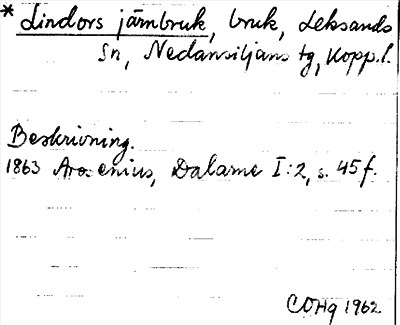 * Lindors järnbruk, bruk, Leksands
sn, Nedansiljans tg, Kopp.l.
Beskrivning.
1863 Arosenius, Dalarne I:2, s. 45 f.
COHq 1962